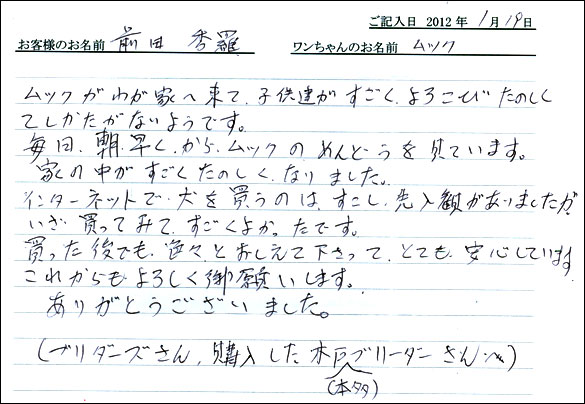 ご記入日 2012 年 1月 19日
お客様のお名前 前田 秀羅 ワンちゃんのお名前 ムック
ムックがわが家へ来て、子供達がすごく、よろこびたのしく
てしかたがないようです。
毎日、朝、早く、から、ムックのめんどうを見ています。
家の中がすごくたのしく、なりました。
インターネットで、犬を買うのは、すこし、先入観がありましたが
いざ、買ってみて、すごくよかったです。
買った後でも、色々、とおしえて下さって、とても、安心しています
これからもよろしく御願いします。
ありがとうございました。
(ブリダーズさん、購入した木戸ブリーダーさんへ)